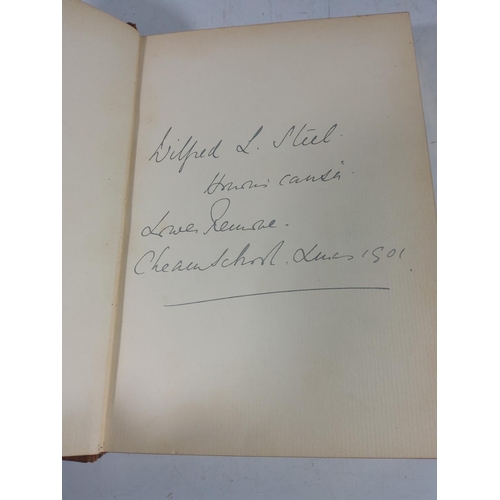 Wilfred L. Steel.
Honoris causâ.
Lower Remove.
Cheam School. Xmas 1901.